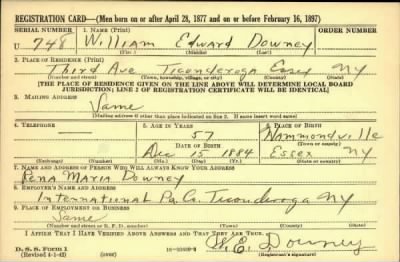 REGISTRATION CARD—(Men born on or after April 28, 1877 and on or before February 16, 1897)
SERIAL NUMBER 1. NAME (Print) ORDER NUMBER
U 748 William Edward Downey
(First) (Middle) (Last)
2. PLACE OF RESIDENCE (Print)
Third Ave Ticonderoga Essex NY
(Number and street) (Town, township, village, or city) (County) (State)
[THE PLACE OF RESIDENCE GIVEN ON THE LINE ABOVE WILL DETERMINE LOCAL BOARD
JURISDICTION; LINE 2 OF REGISTRATION CERTIFICATE WILL BE IDENTICAL]
3. MAILING ADDRESS
Same
(Mailing address if other than place indicated on line 2. If same insert word same)
4. TELEPHONE 5. AGE IN YEARS 6. PLACE OF BIRTH
57 Hammondville
DATE OF BIRTH (Town or county)
Dec 15 1884 Essex NY
(Exchange) (Number) (Mo.) (Day) (Yr.) (State or country)
7. NAME AND ADDRESS OF PERSON WHO WILL ALWAYS KNOW YOUR ADDRESS
Rena Maria Downey
8. EMPLOYER'S NAME AND ADDRESS
International Pa. Co. Ticonderoga NY
9. PLACE OF EMPLOYMENT OR BUSINESS
Same
(Number and street or R. F. D. number) (Town) (County) (State)
I AFFIRM THAT I HAVE VERIFIED ABOVE ANSWERS AND THAT THEY ARE TRUE.
D. S. S. Form 1
(Revised 4-1-42) (over) W. E. Downey
(Registrant's signature)